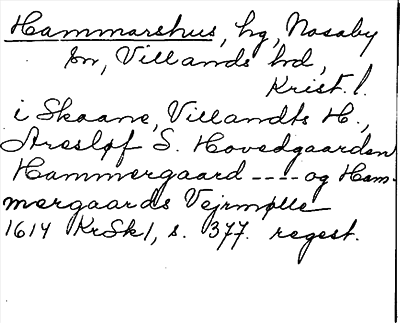 Hammarshus, hg, Nosaby
sn, Villands hd,
Krist. l.
i Skaane, Villandts H.,
Aresløf S. Hovedgaarden
Hammergaard ---- og Ham-
mergaards Vejrmølle
1614 KrSk 1, s. 377. regest.